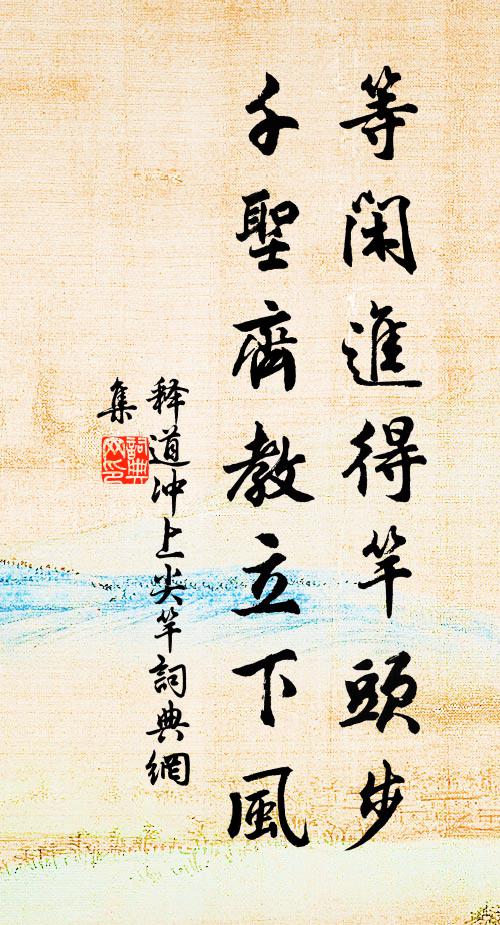 等閑進得竿頭步
千聖齊教立下風
释道冲上尖竿詞典網
集
詞典